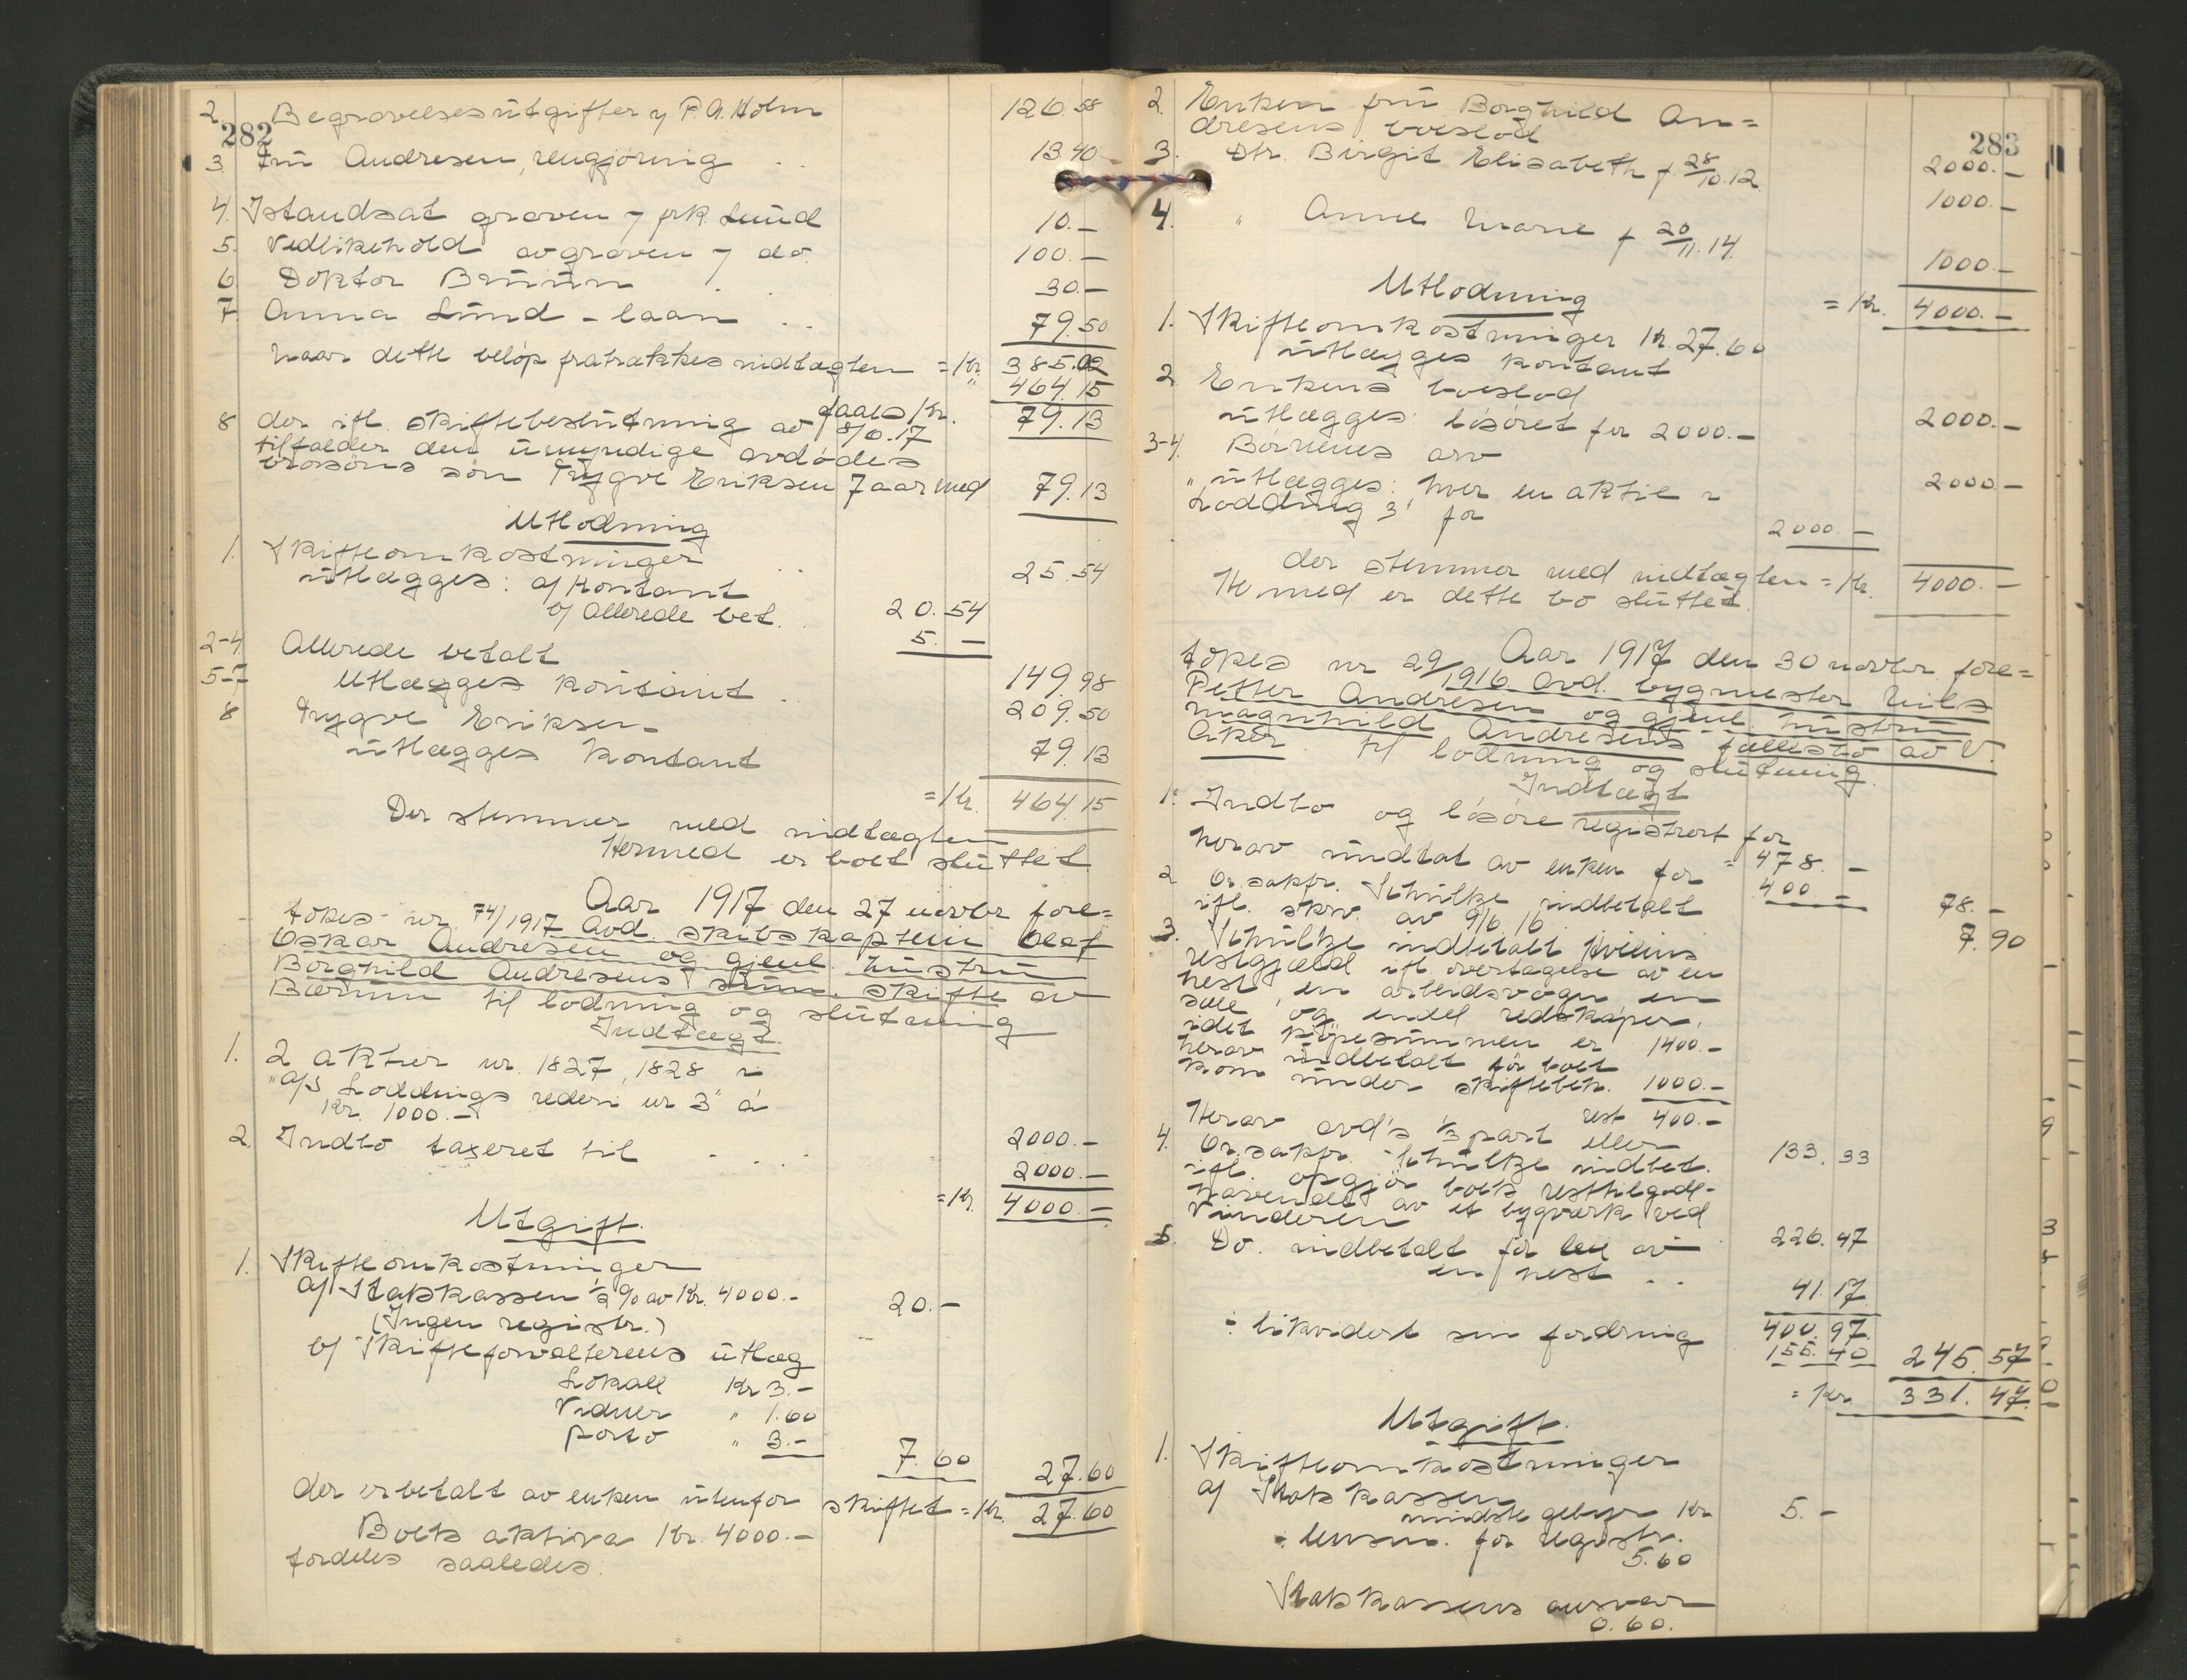 282
2. Begravelsesutgifter y P. A. Holm 126.58
3 Fru Andresen, rengjøring . . 13 40
4. Istandsat graven y prk. Lund 10.–
5. Vedlikehold av graven y do. 100.–
6 Doktor Bruun . . 30.–
7 Anna Lund – laan . . 79.50
= Kr. 385.02
Naar dette beløp fratrækkes indtægten " 464.15
faaes Kr. 79.13
8 der ifl. skiftebeslutning av 8/6.17
tilfalder den umyndige avdødes
brorsøns søn Trygve Eriksen 7 aar med 79.13
Utlodning
1. Skifteomkostninger . . 25.54
utlægges: a/ Kontant 20.54
b/ Allerede bet. 5. –
2-4 Allerede betalt 149.98
5-7 Utlægges kontant . 209.50
8 Trygve Eriksen –
utlægges kontant 79.13
= Kr. 464.15
Der stemmer med indtægten
Hermed er boet sluttet.
Aar 1917 den 27 novbr fore=
tokes nr 74/1917 Avd. skibskaptein Olaf
Oskar Andresen og gjenl. hustru
Borghild Andresens sum. skifte av
Bærum til lodning og slutning
Indtægt.
1. 2 aktier nr. 1827, 1828 i
"A/S Loddings rederi nr 3" á
Kr. 1000.– 2000.–
2. Indbo taxeret til . . . . 2000.–
= Kr. 4000.–
Utgift.
1. Skifteomkostninger
a/ Statskassen 1/2 % av Kr. 4000.– 20.–
(Ingen registr.)
b/ Skifteforvalterens utlæg
Lokale Kr 3.–
Vidner " 1.60
porto " 3.– 7.60 27.60
Der er betalt av enken utenfor skiftet = Kr. 27.60
Boets aktiva Kr. 4000.–
fordeles saaledes:
283
2. Enken fru Borghild An=
dresens boeslod 2000.–
3. Dtr. Birgit Elisabeth f. 28/10.12 1000.–
4. " Anne Marie f. 20/11.14. 1000.–
= Kr. 4000.–
Utlodning
1. Skifteomkostninger Kr. 27.60
utlægges kontant
2. Enkens boeslod 2000.–
utlægges: løsøret for 2000.–
3-4. Børnenes arv 2000.–
utlægges: hver en aktie i
"Lodding 3" for 2000.–
der stemmer med indtægten = Kr. 4000.–
Hermed er dette bo sluttet.
Aar 1917 den 30 novbr. fore=
tokes nr 29/1916 Avd. bygmester Nils
Petter Andresen og gjenl. hustru
Magnhild Andresens fællesbo av V.
Aker til lodning og slutning
Indtægt
1. Indbo og løsøre registrert for = 478. –
herav undtat av enken for 400 – 78. –
2 Or.sakfr. Schultze indbetalt
ifl. skriv. av 9/6 16 7.90
3. Schultze indbetalt Hviliens
restgjæld ifl. overtagelse av en
hest, en arbeidsvogn en
sæle og endel redskaper,
idet kjøpesummen er 1400.–
herav indbetalt før boet
kom under skiftebeh. 1000.–
rest 400.–
Herav avd's 1/3 part eller 133.33
4. Or.sakfr. Schultze indbet.
ifl. opgjør boets resttilgode-
havende av et bygverk ved
Vinderen 226.47
5. Do. indbetalt for leie av
en hest . . 41.17
400.97
÷ likvidert sin fordring 155.40 245.57
= Kr. 331.47
Utgift.
1. Skifteomkostninger
a/ Statskassen
mindste gebyr Kr 5. –
÷ lensm. for registr.
5.60
Statskassens ansvar
0.60.